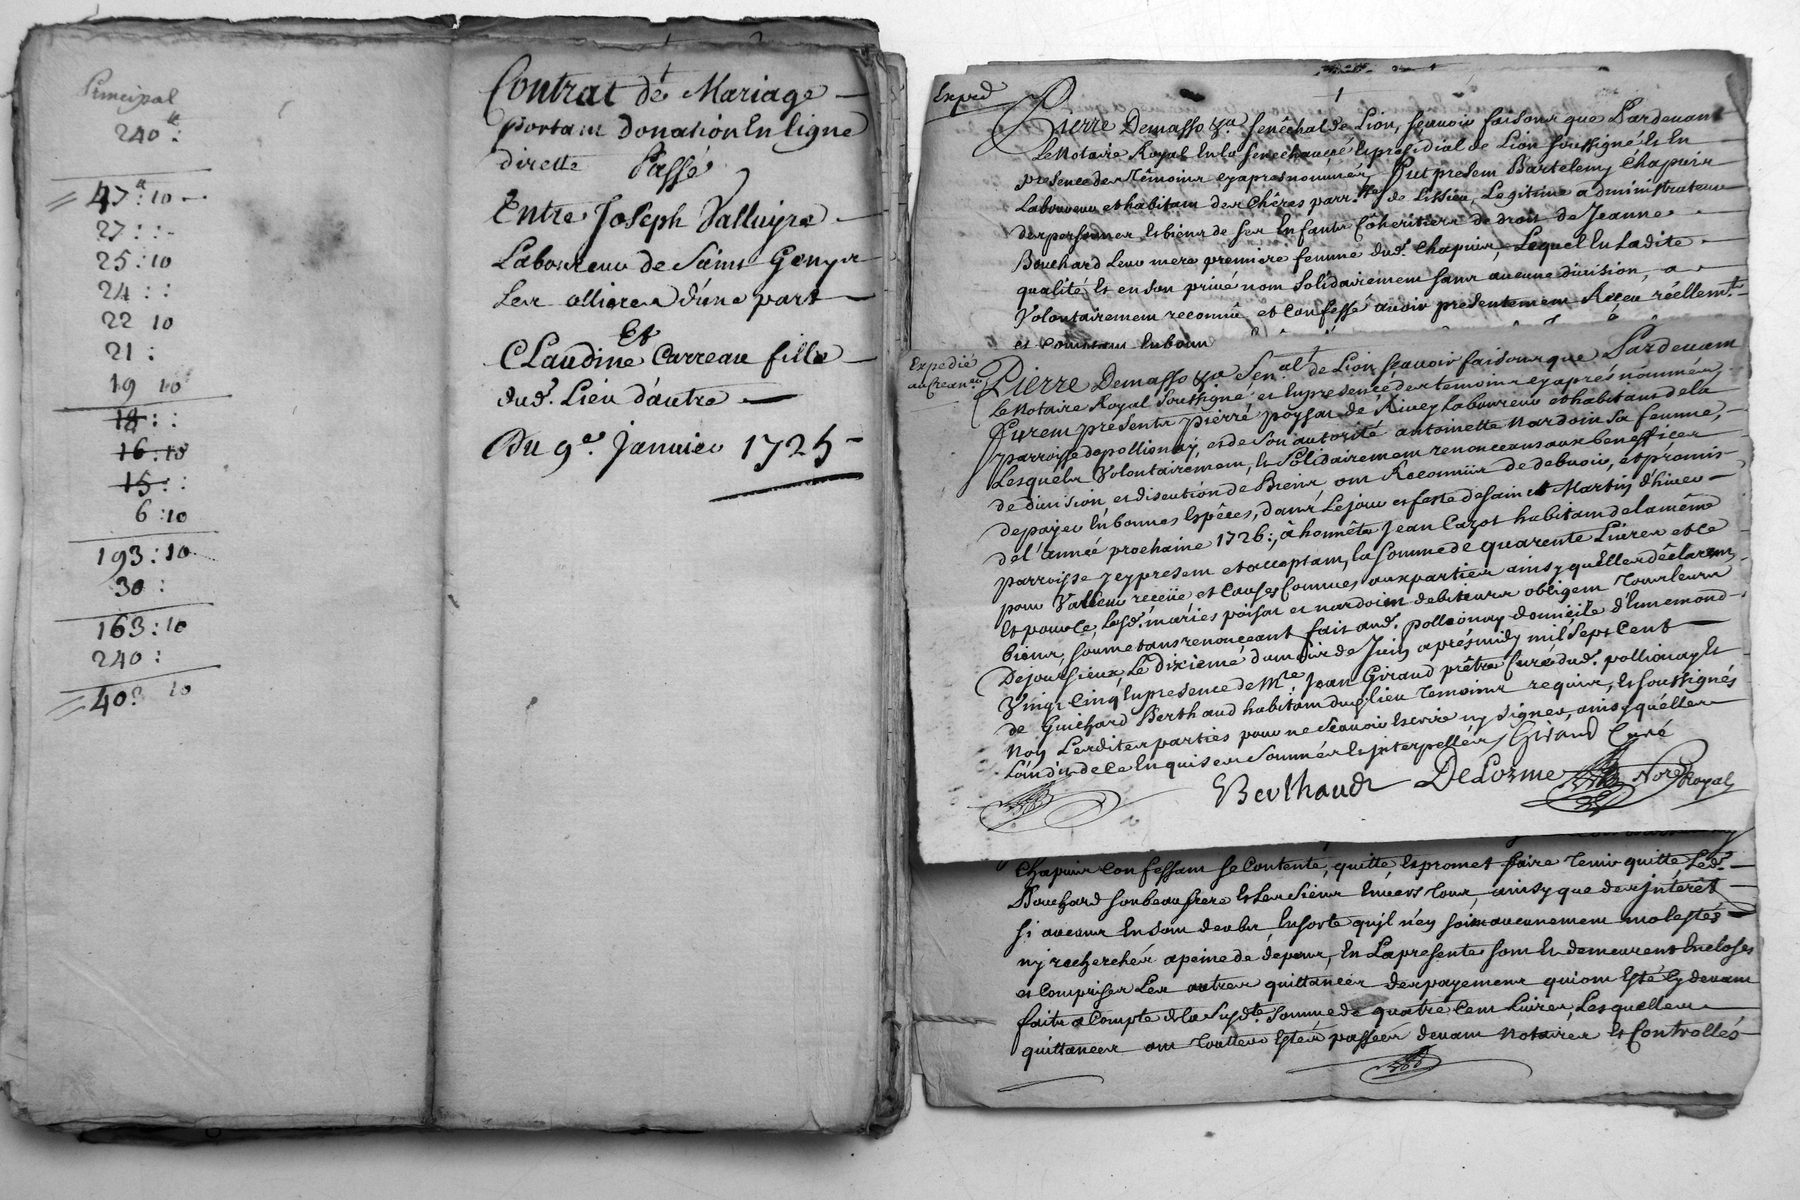 Principal
240
47 : 10
27 : :
25 : 10
24 : :
22 10
21 :
19 10
18 : :
16 : 10
15 : :
6 : 10
193 : 10
30 :
163 : 10
240 :
403 10
Contrat de Mariage
portant donation En ligne
directe Passé
Entre Joseph Valluÿre
Laboureur de Saint Genys
Les ollieres d'une part
Et
Claudine Carreau fille
dud. Lieu d'autre
Du 9e. Janvier 1725
Exped
Pierre Demasso &a Senêchal de Lion, scavoir faisons que Pardevant
Le Notaire Royal En la Senechaucé Et presidial de Lion soussigné Et En
presence des Têmoins cy apres nommés, fut present Bartelemy Chapuis
Laboureur et habitant des Chêres parr. de Lissieu, Legitime administrateur
des personnes Et biens de ses Enfants Cohêritiers de droit de Jeanne
Bouchard Leur mere premiere femme dud. Chapuis, Lequel En Ladite
qualité Et en son privé nom Solidairement sans aucune division, a
Volontairement reconnû et confessé avoir presentement Reçeu réellemt.
et comptant En bonn
Expedié
au Crean
Pierre Demasso &a Senal. de Lion Scavoir faisons que Pardevant
Le Notaire Royal Soussigné et En presence des temoins cy aprés nommés
Furent presents pierre poÿsat de Rivey laboureur et habitant de la
parroisse de pollionaÿ, et de Son autorité antoinette nardoin sa femme,
Lesquels Volontairement, Et Solidairement renonceans aux benefices
de division, et discution de Biens ont Reconnûs de debvoir, et promis
de payer En bonnes Espêces, dans Le jour et feste de saint Martin d'hiver
de l'année prochaine 1726 :, à honnête Jean Cazot habitant de la même
parroisse y cy present et acceptant, la somme de quarente Livres et ce
pour Valleur receüe et Causes Connues aux parties ainsy quElles dêclarent,
Et pour ce, Lesd. mâries poisat et nardoin debiteurs obligent Tous leurs
biens, soumetans renonceant fait aud. pollionay domicile d'Ennemond
Dejoursieux, Le dixieme du mois de Juin aprésmidy mil Sept Cent
Vingt Cinq En presence de Mre. Jean Giraud prêtre Curé dud. pollionay Et
de Guichard Berthaud habitant dud lieu Temoins requis, Et soussignés
Non Lesdites parties pour ne Scavoir Escrire ny signer, ainsy quElles
L'on dit de ce Enquises Sommés Et interpellés Giraud Curé
Berthaud DeLorme Nore Royal
Chapuis Confessant se Contenté, quitte, Et promet faire Tenir quitte Led.
Bouchard son beau frere Et Les siens Envers Tous, ainsy que des jnterêts
si aucuns En sont deubs, En sorte qu'jl n'en soint aucunement molestés
nÿ recherchés a peine de dépens, En La presente sont Et demeurent Encloses
et Comprises Les autres quittances des payements qui ont Esté Cy devant
faits a Compte de la Susdte. Somme de quatre Cent Livres, Lesquelles
quittances ont Toutes Estés passées devant Notaires Et Controllés